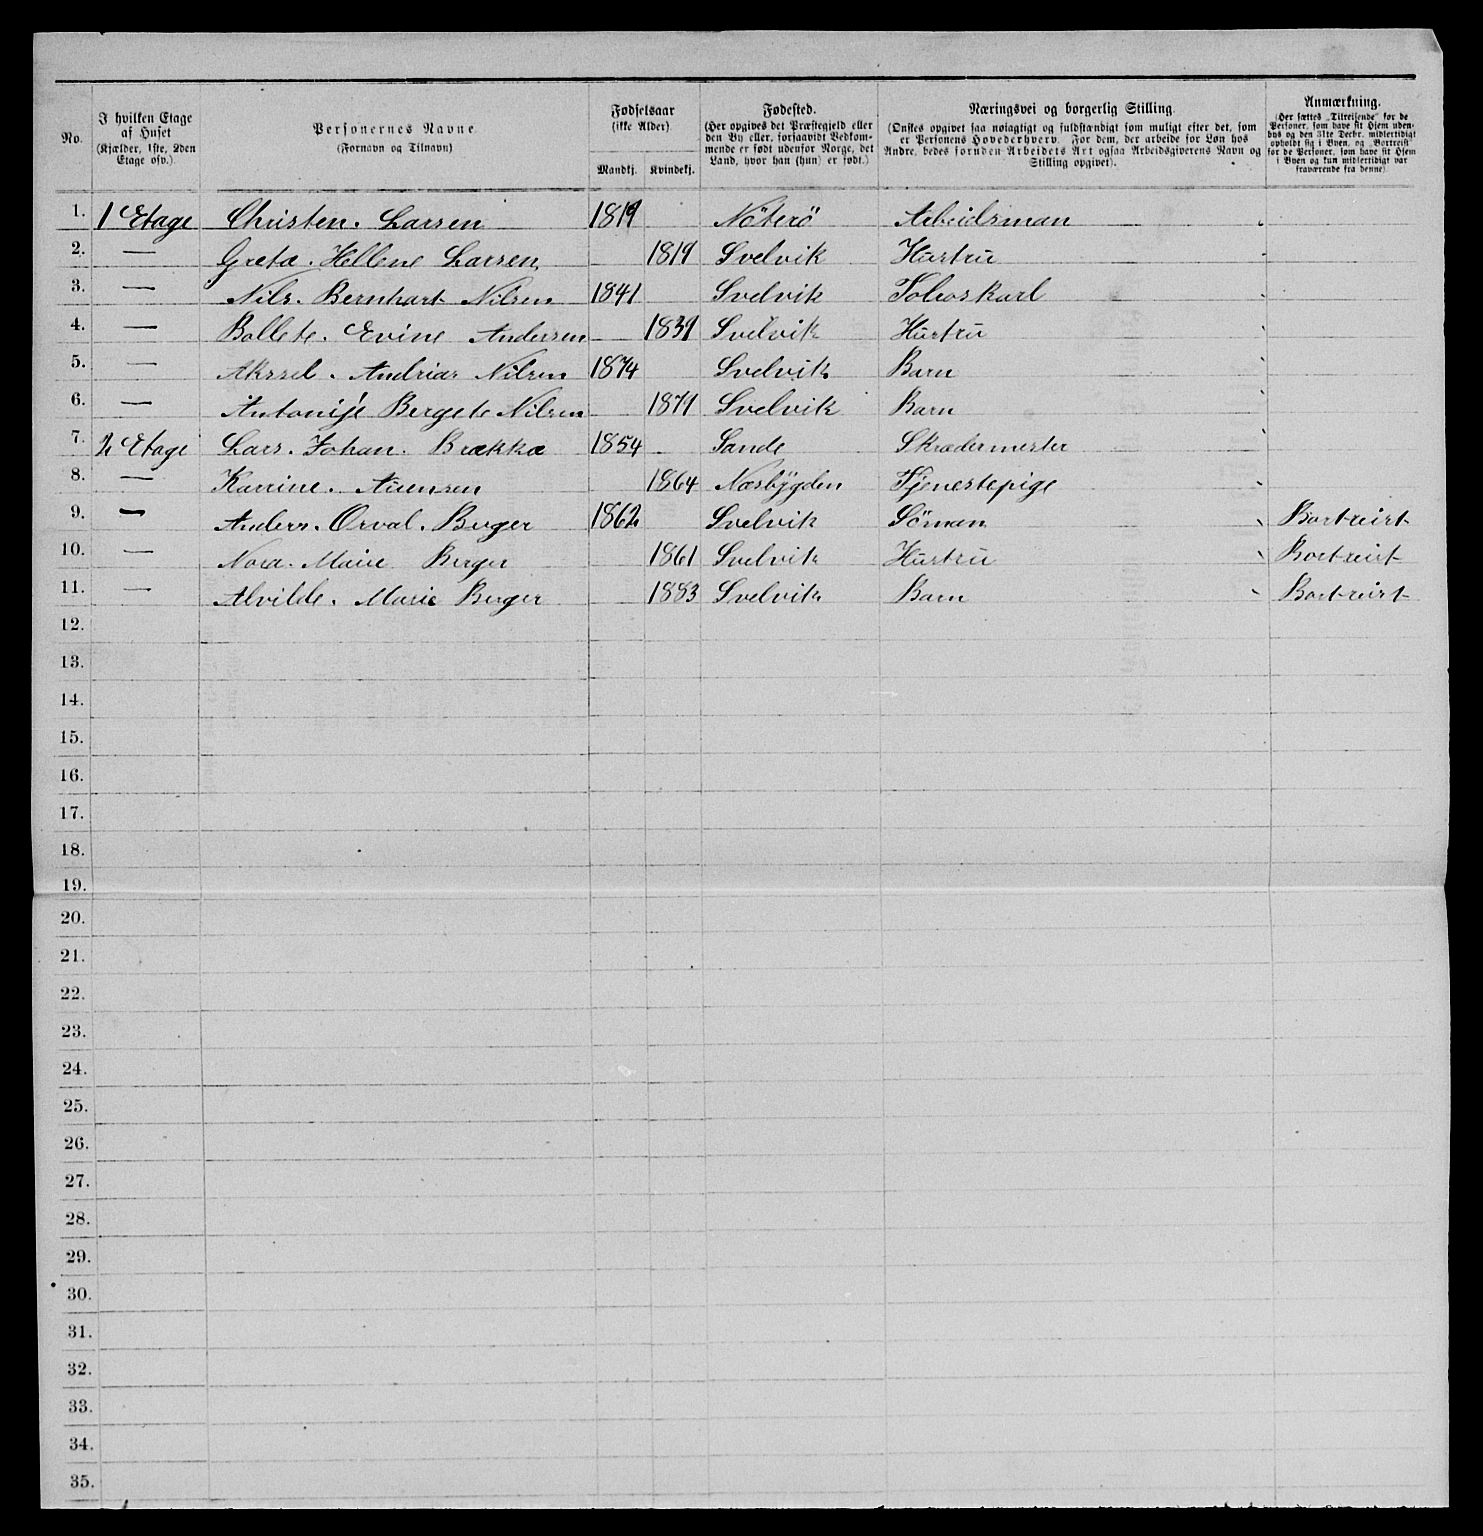 No.
I hvilken Etage
af Huset
(Kjælder, 1ste, 2den
Etage osv.).
Personernes Navne
(Fornavn og Tilnavn)
Fødselsaar
(ikke Alder).
Mandkj. Kvindekj.
Fødested.
(Her opgives det Præstegjeld eller
den By eller, forsaavidt Vedkom-
mende er født udenfor Norge, det
Land, hvor han (hun) er født.)
Næringsvei og borgerlig Stilling.
(Ønskes opgivet saa nøiagtigt og fuldstændigt som muligt efter det, som
er Personens Hovederhverv. For dem, der arbeide for Løn hos
Andre, bedes foruden Arbeidets Art ogsaa Arbeidsgiverens Navn og
Stilling opgivet).
Anmærkning.
(Her sættes „Tilreisende" for de
Personer, som have sit Hjem uden-
bys og den 31te Decbr. midlertidigt
opholdt sig i Byen, og „Bortreist"
for de Personer, som have sit Hjem
i Byen og kun midlertidigt var
fraværende fra denne)
1. 1 Etage Christen. Larsen 1819 Nöterö Arbeidsman
2. — Greta. Hellene Larsen 1819 Svelvik Hustru
3. — Nils. Bernhart Nilsen 1841 Svelvik
4. — Bollete. Evine Andersen 1839 Svelvik Hustru
5. — Akssel. Andrias Nilsen 1874 Svelvik Barn
6. — Bergete Nilsen 1879 Svelvik Barn
7. 2 Etage Lars. Johan. Brække 1854 Sande Skrædermester
8. — Karrine. 1864 Næsbygden Tjenestepige
9. — Anders. Orval. Berger 1862 Svelvik Söman Bortreist
10. — Nora. Maire Berger 1861 Svelvik Hustru Bortreist
11. — Alvilde. Marie Berger 1883 Svelvik Barn Bortreist
12.
13.
14.
15.
16.
17.
18.
19.
20.
21.
22.
23.
24.
25.
26.
27.
28.
29.
30.
31.
32.
33.
34.
35.